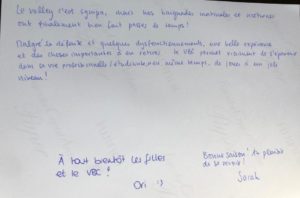 Le volley c'est sympa, mais nos baignades matinales et nocturnes
ont également bien fait passer le temps !
Malgré la défaite et quelques dysfonctionnements, une belle expérience
et des choses importantes à en retirer. Le VBC permet vraiment de s'épanouir
dans sa vie professionnelle / étudiante et, en même temps, de jouer à un joli
niveau !
À tout bientôt les filles
et le VBC !
Ori :)
Bonne saison ! Au plaisir
de se revoir !
Sarah